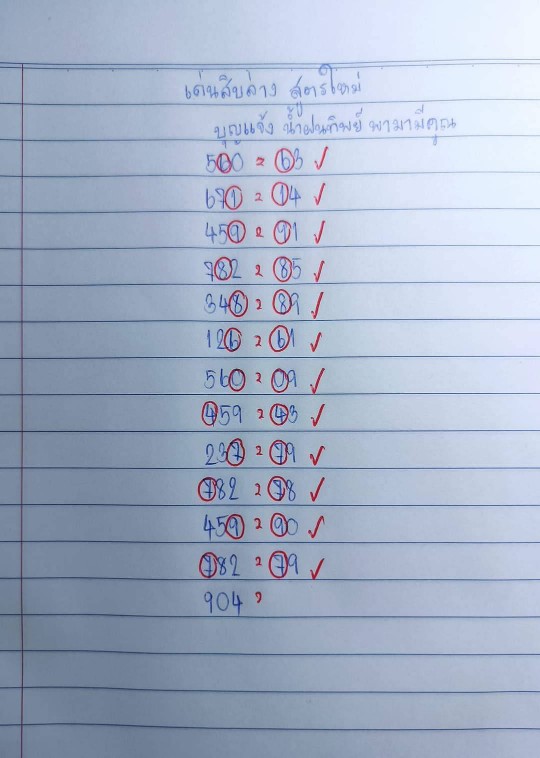 เด่นสิบล่าง สูตรใหม่
บุญแจ้ง น้ำฝนทิพย์ พามามีคูณ
560 = 63 ✓
671 = 14 ✓
459 = 91 ✓
782 = 85 ✓
348 = 89 ✓
126 = 61 ✓
560 = 09 ✓
459 = 43 ✓
237 = 79 ✓
782 = 78 ✓
459 = 90 ✓
782 = 79 ✓
904 =